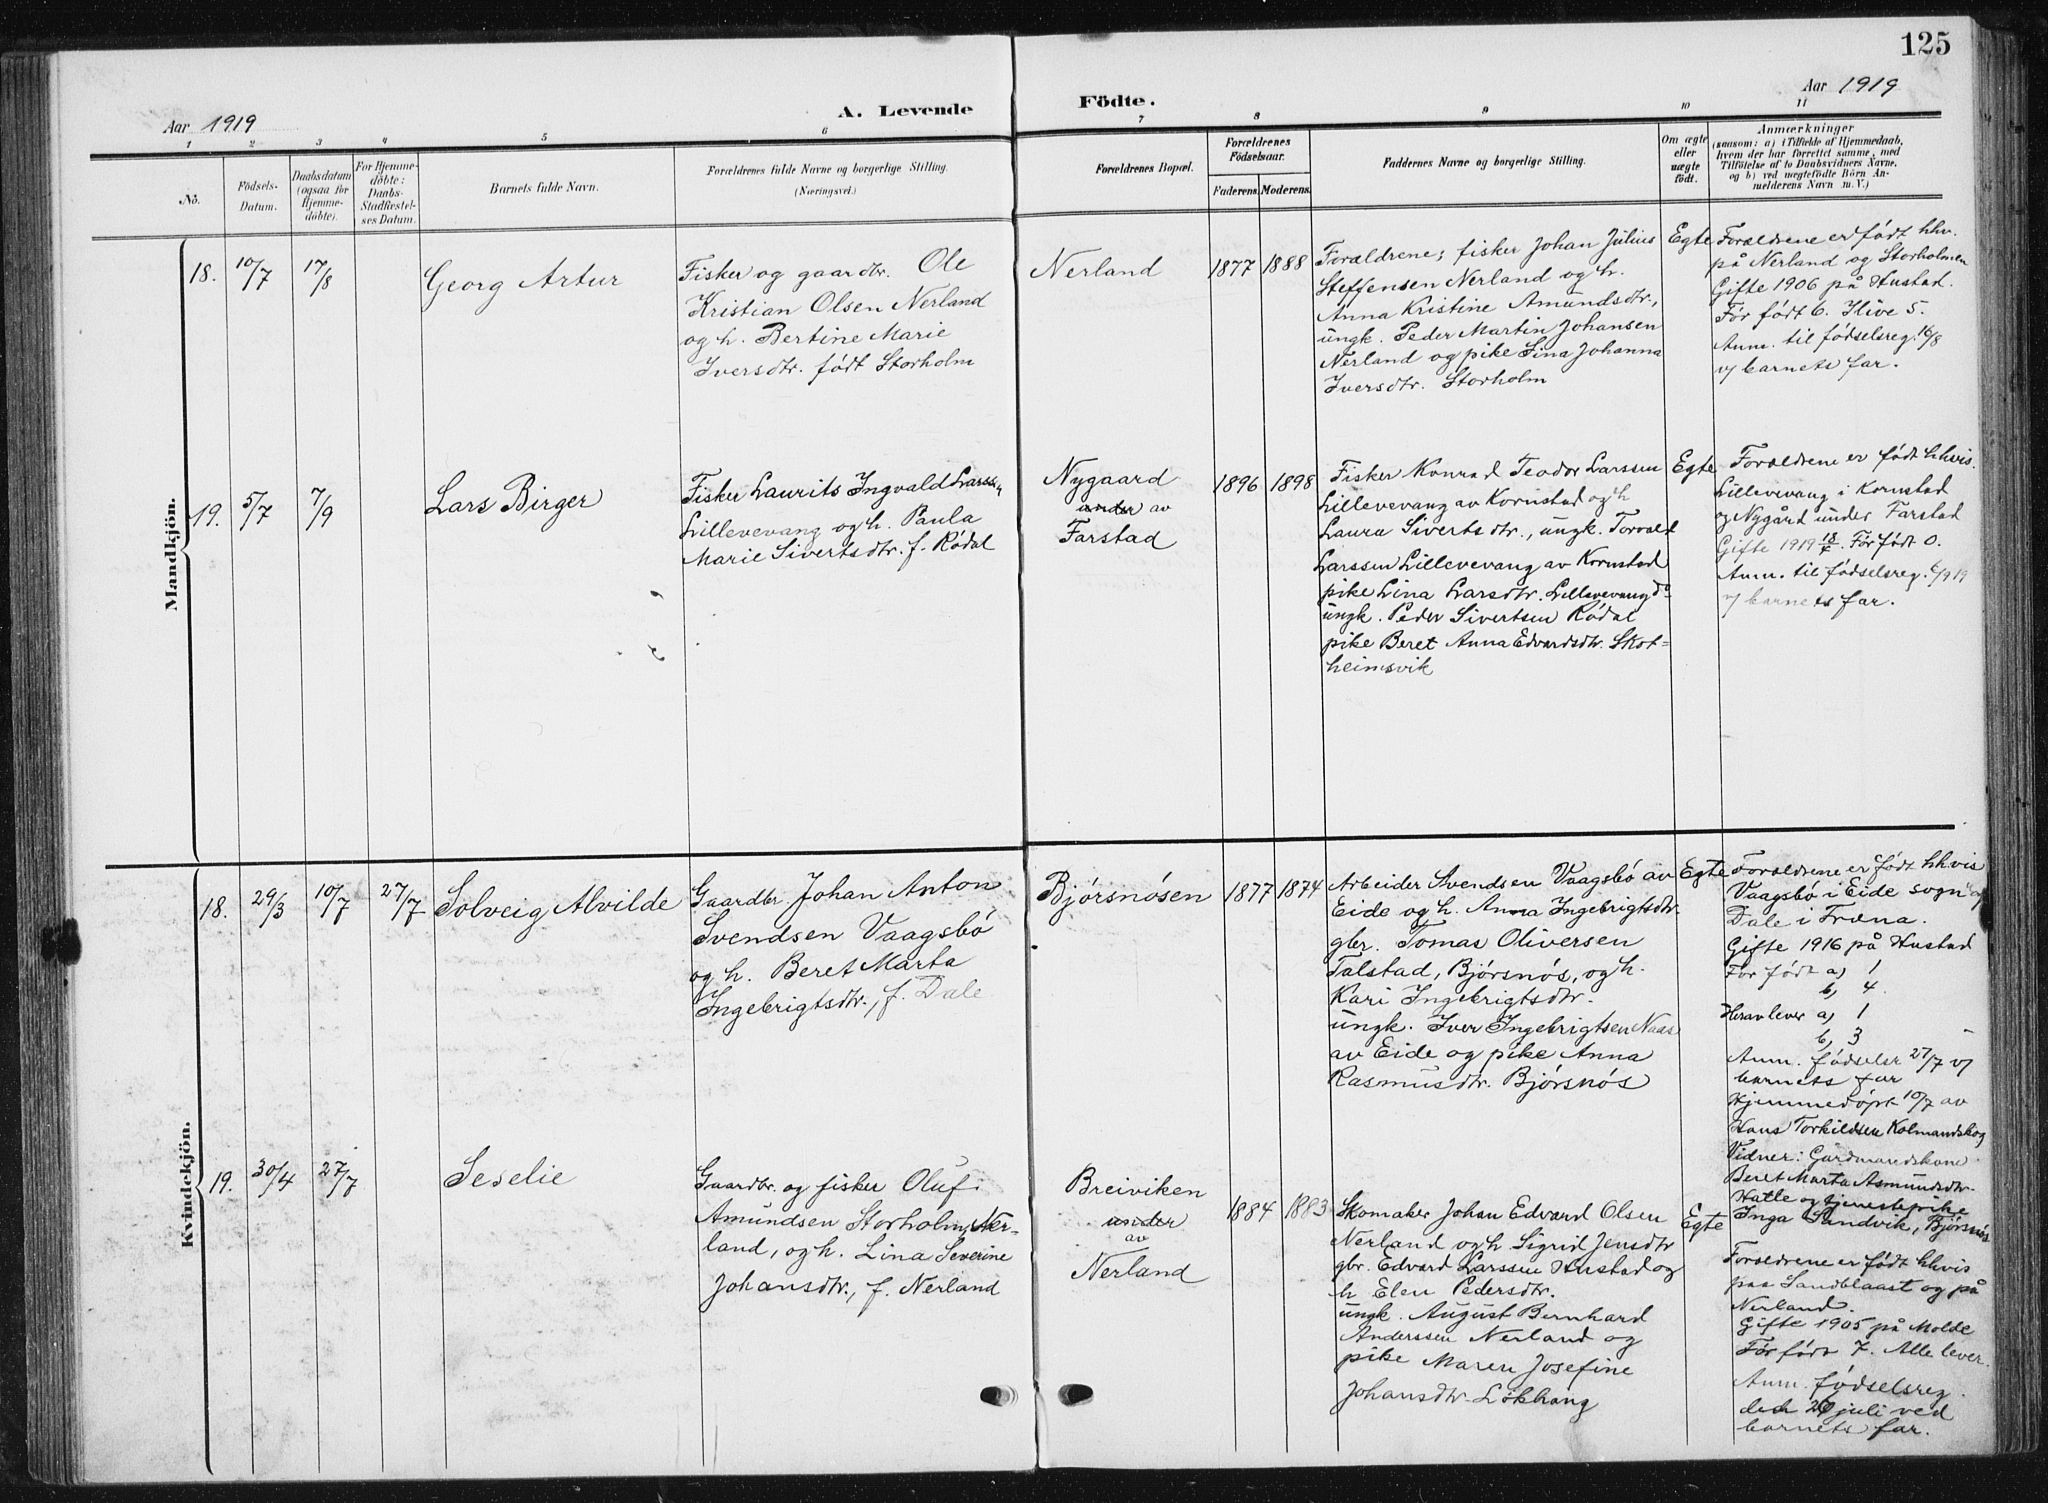 125
Aar 1919
A. Levende
Födte.
Aar 1919
1 2 3 4 5 6 7 8 9 10 11
No.
Födsels-
Datum.
Daabsdatum
(ogsaa for
Hjemme-
döbte).
For Hjemme-
döbte:
Daabs-
Stadfestel-
ses Datum.
Barnets fulde Navn.
Forældrenes fulde Navne og borgerlige Stilling.
(Næringsvei.)
Forældrenes Bopæl.
Forældrenes
Födselsaar.
Faderens. Moderens.
Faddernes Navne og borgerlige Stilling.
Om ægte
eller
uægte
født.
Anmærkninger
(saasom: a) i Tilfælde af Hjemmedaab,
hvem der har forrettet samme, med
Tilföielse af to Daabsvidners Navne,
og b) ved uægtefödte Börn An-
melderens Navn m. V.)
Mandkjön.
18.
10/7
17/8
Georg Artur
Fisker og gaardbr. Ole
Kristian Olsen Nerland
og h. Bertine Marie
Iversdtr. født Storholm
Nerland
1877
1888
Forældrene; fisker Johan Julius
Steffensen Nerland og h.
Anna Kristine Amundsdtr.,
ungk. Peder Martin Johansen
Nerland og pike Lina Johanna
Iversdtr. Storholm
Egte
Forældrene er født hhv.
på Nerland og Storholmen
Gifte 1906 på Hustad.
Før født 6. Ilive 5.
Anm. til fødselsreg. 16/8
v/ barnets far.
19.
5/7
7/9
Lars Birger
Fisker Laurits Ingvald Larssen
Lillevevang og h. Paula
Marie Sivertsdtr. f. Rødal
Nygaard
under av
Farstad
1896
1898
Fisker Konrad Teodor Larssen
Lillevevang av Kornstad og h
Laura Sivertsdtr., ungk. Torvalt
Larssen Lillevevang av Kornstad
pike Lina Larsdtr. Lillevevang do
ungk. Peder Sivertsen Rødal
pike Beret Anna Edvardsdtr. Skot-
heimsvik
Egte
Forældrene er født hhvis.
Lillevevang i Kornstad
og Nygård under Farstad
Gifte 1919 18/4. Før født 0.
Anm. til fødselsreg. 6/9 19
v/ barnets far.
Kvindekjön.
18.
29/3
10/7
27/7
Solveig Alvilde
Gaardbr Johan Anton
Svendsen Vaagsbö
og h. Beret Marta
Ingebrigtsdtr., f. Dale
Bjørsnøsen
1877
1874
Arbeider Svendsen Vaagsbø av
Eide og h. Anna Ingebrigtsdtr
gbr. Tomas Oliversen
Talstad, Bjørsnøs, og h.
Kari Ingebrigtsdtr.
ungk. Iver Ingebrigtsen Naas
av Eide og pike Anna
Rasmusdtr. Bjørsnøs
Egte
Forældrene er født hhvis
Vaagsbø i Eide sogn og
Dale i Fræna.
Gifte 1916 på Hustad
Før født a, 1
b, 4
Herav lever a, 1
b, 3
Anm. fødselsr 27/7 v/
barnets far
Hjemmedøpt 10/7 av
Hans Torkildsen Kolmandskog
Vidner: Gardmandskone
Beret Marta Asmundsdtr
Hatle og tjenestepike
Inga Sandvik, Bjørsnøs
19.
30/4
27/7
Seselie
Gaardbr. og fisker Oluf
Amundsen Storholm, Ner-
land, og h. Lina Severine
Johansdtr., f. Nerland
Breiviken
under
av
Nerland
1884
1883
Skomaker Johan Edvard Olsen
Nerland og h Sigrid Jensdtr
gbr. Edvard Larssen Hustad og
h Elen Pedersdtr.
ungk. August Bernhard
Anderssen Nerland og
pike Maren Josefine
Johansdtr. Løkhaug
Egte
Forældrene er født hhvis
paa Sandblaast og på
Nerland.
Gifte 1905 på Molde
Før født 7. Alle lever.
Anm. fødselsreg.
den juli ved
barnets far.